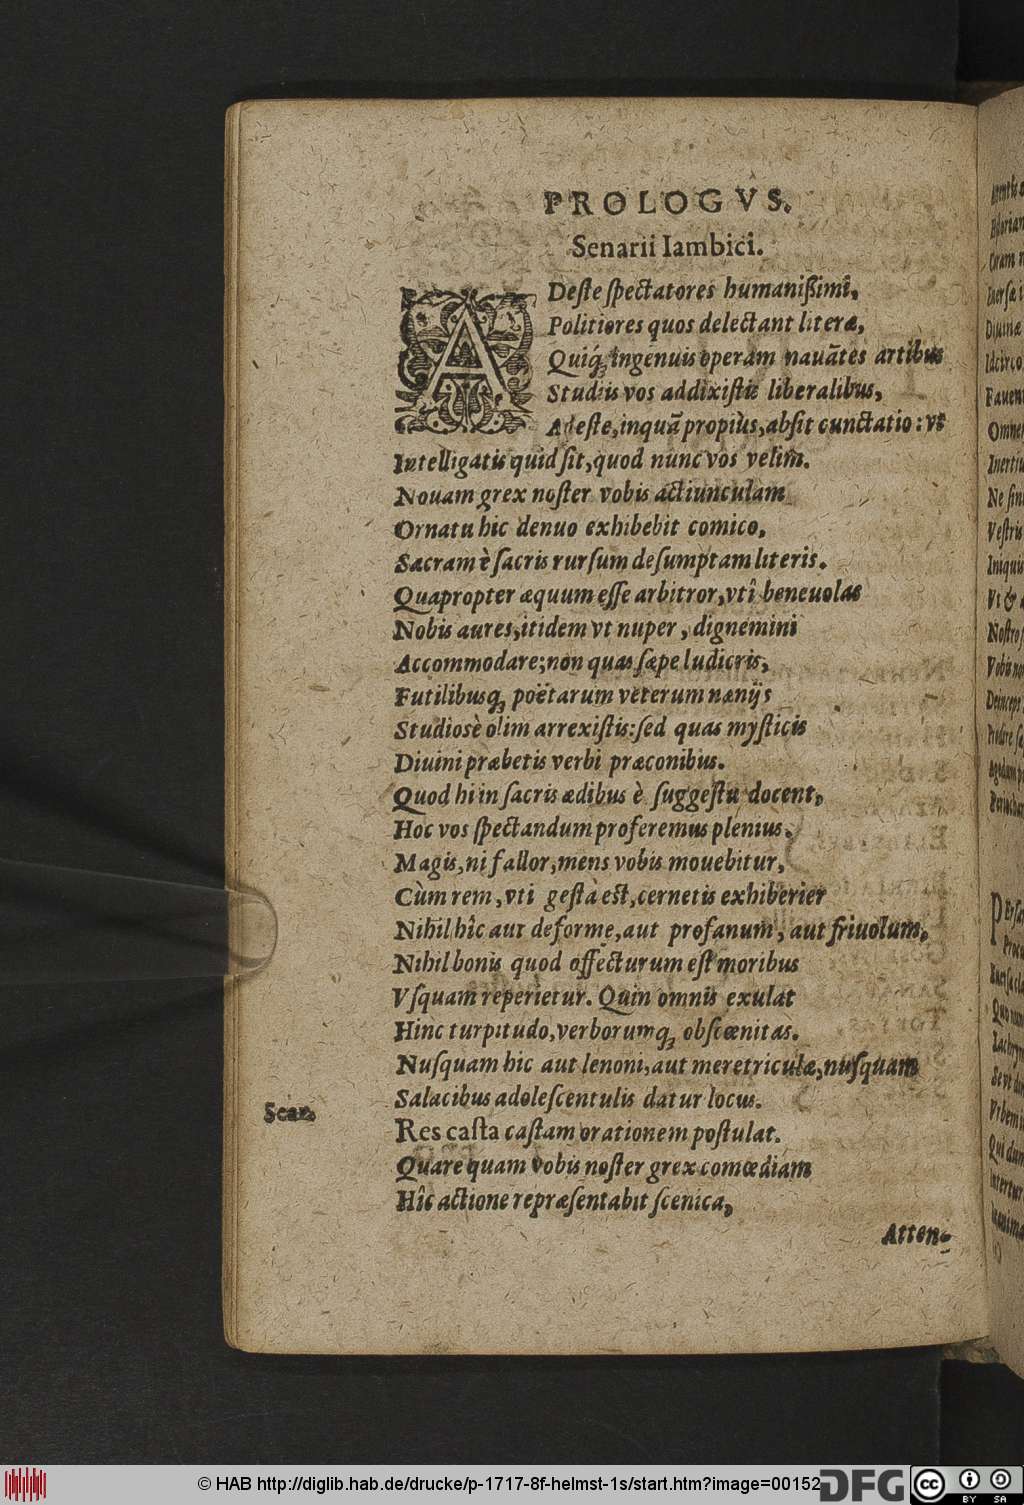 PROLOGVS.
Senarii Iambici.
ADeſte ſpectatores humaniſſimi,
Politiores quos delectant literæ,
Quiq́; ingenuis operam nauātes artibus
Studiis vos addixiſtis liberalibus,
Adeſte, inquā propiùs, abſit cunctatio: vt
Intelligatis quid ſit, quod nunc vos velim.
Nouam grex noſter vobis actiunculam
Ornatu hic denuo exhibebit comico,
Sacram è ſacris rurſum deſumptam literis.
Quapropter æquum eſſe arbitror, vtî beneuolas
Nobis aures, itidem vt nuper, dignemini
Accommodare; non quas ſæpe ludicris,
Futilibusq; poëtarum veterum nænijs
Studiosè olim arrexiſtis: ſed quas myſticis
Diuini præbetis verbi præconibus.
Quod hi in ſacris ædibus è ſuggeſtu docent,
Hoc vos ſpectandum proferemus plenius.
Magis, ni fallor, mens vobis mouebitur,
Cùm rem, vti geſta est, cernetis exhiberier
Nihil hîc aut deforme, aut profanum, aut friuolum,
Nihil bonis quod offecturum eſt moribus
Vſquam reperietur. Quin omnis exulat
Hinc turpitudo, verborumq; obſcœnitas.
Nuſquam hic aut lenoni, aut meretriculæ, nuſquam
Salacibus adoleſcentulis datur locus.
Scar.
Res caſta caſtam orationem poſtulat.
Quare quam vobis noſter grex comœdiam
Hîc actione repræſentabit ſcenica,
Atten-
© HAB http://diglib.hab.de/drucke/p-1717-8f-helmst-1s/start.htm?image=00152
DFG
cc BY SA